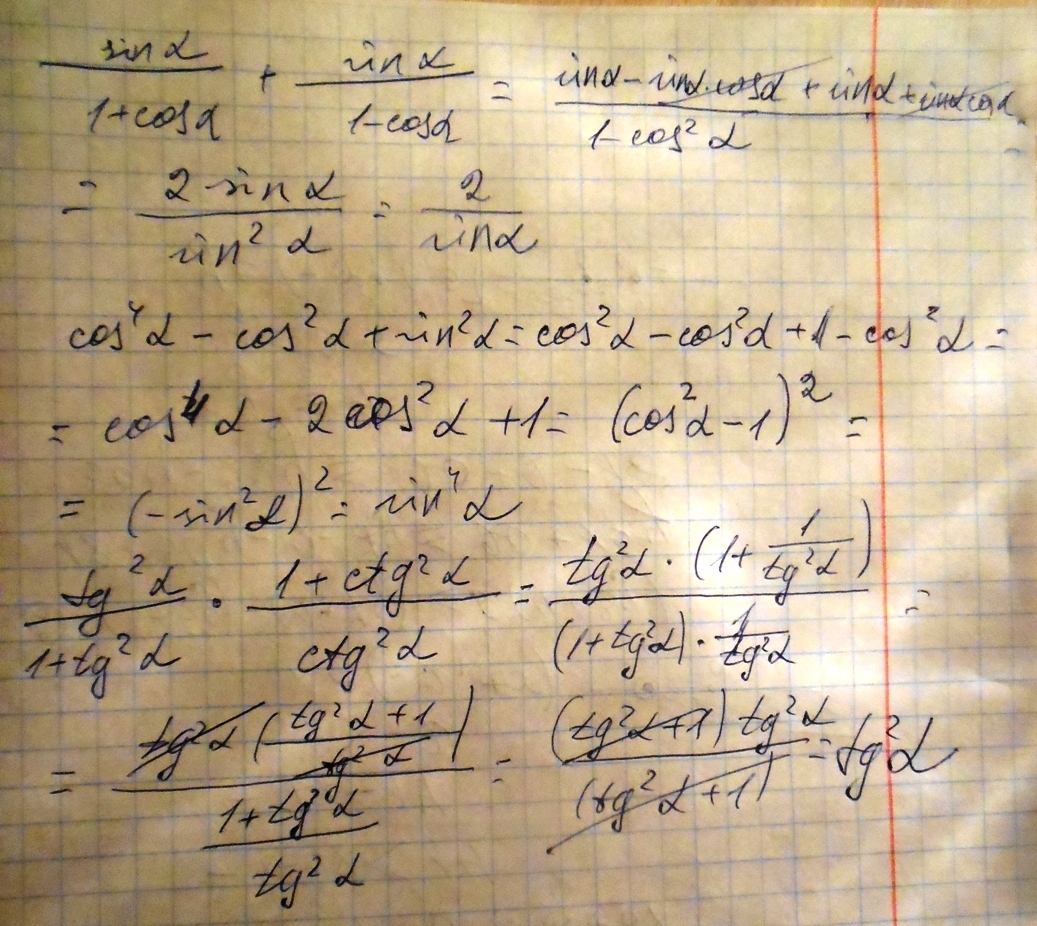 sin α / (1+cos α) + sin α / (1-cos α) = (sin α - sin α·cos α + sin α + sin α cos α) / (1-cos² α) =
= 2 sin α / sin² α = 2 / sin α
cos⁴ α - cos² α + sin² α = cos² α - cos² α + 1 - cos² α =
= cos⁴ α - 2 cos² α + 1 = (cos² α - 1)² =
= (-sin² α)² = sin⁴ α
tg² α / (1+tg² α) · (1+ctg² α) / ctg² α = (tg² α · (1 + 1/tg² α)) / ((1+tg² α) · 1/tg² α) =
= (tg² α ((tg² α + 1) / tg² α)) / ((1+tg² α) / tg² α) = ((tg² α + 1) tg² α) / (tg² α + 1) = tg² α